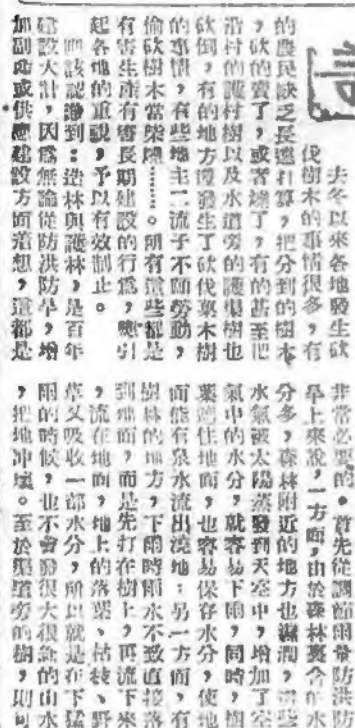 去冬以來各地發生砍
伐樹木的事情很多，有
的農民缺乏長遠打算，把分到的樹木
，砍的賣了，或者燒了，有的甚至把
沿村的護村樹以及水道旁的護堤樹也
砍倒，有的地方還發生了砍伐菓木樹
的事情，有些地主二流子不願勞動，
偷砍樹木當柴燒……。所有這些都是
有害生產有害長期建設的行爲，應引
起各地的重視，予以有效制止。
應該認識到：造林與護林，是百年
建設大計，因爲無論從防洪防旱，增
加副助或供應建設方面着想，這都是
非常必要的。首先從調節雨量防洪防
旱上來說，一方面，由於森林裏含的
分多，森林附近的地方也濕潤，這些
水氣被太陽蒸發到天空中，增加了空
氣中的水分，就容易下雨，同時，樹
葉遮住地面，也容易保存水分，使地
面能有泉水流出澆地；另一方面，有
樹林的地方，下雨時雨水不致直接落
到地面，而是先打在樹上，再流下來
，流在地面，地上的落葉、枯枝、野
草又吸收一部水分，所以就是在下猛
雨的時候，也不會發很大很急的山水
，把地冲壞。至於堤道旁的樹，則可